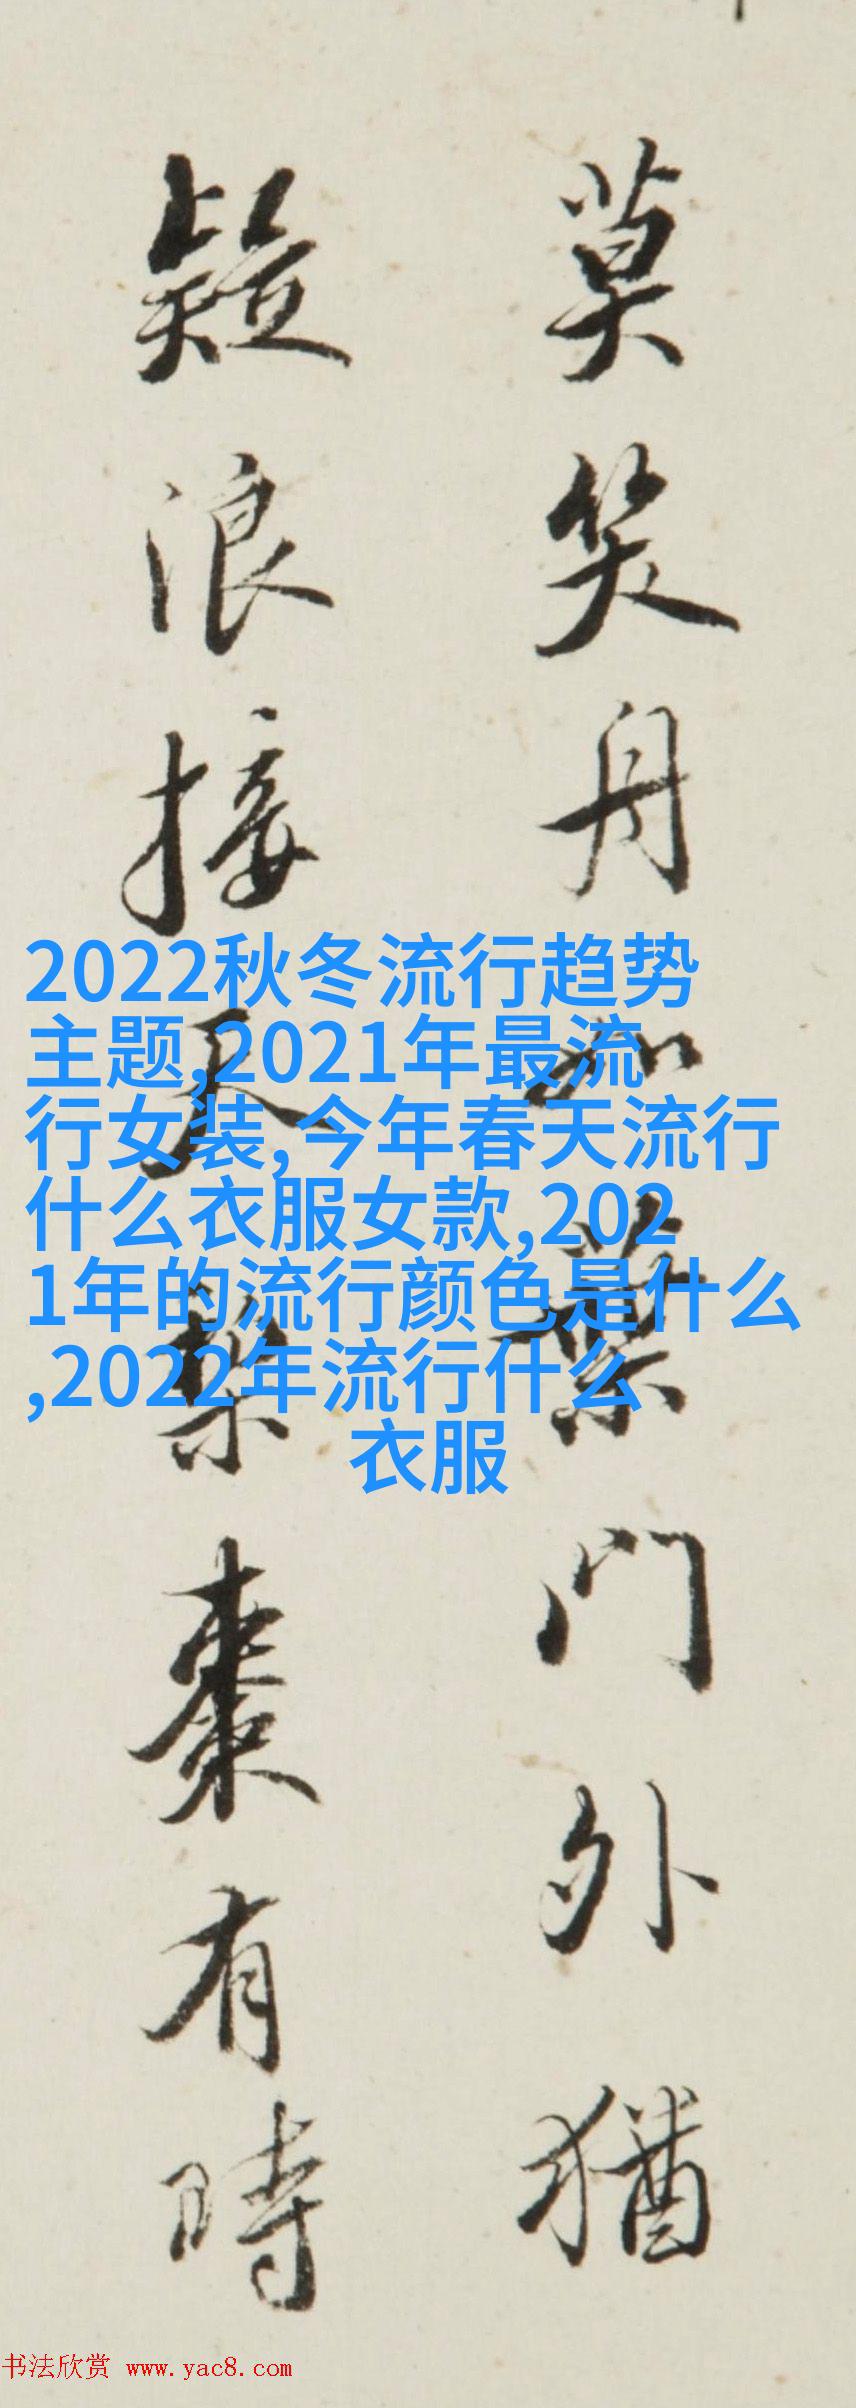 莫笑舟如葉門外猶
疑浪接天梨棗有時
2022秋冬流行趋势
主题,2021年最流
行女装,今年春天流行
什么衣服女款,202
1年的流行颜色是什么
,2022年流行什么
衣服
书法欣赏 www.yac8.com